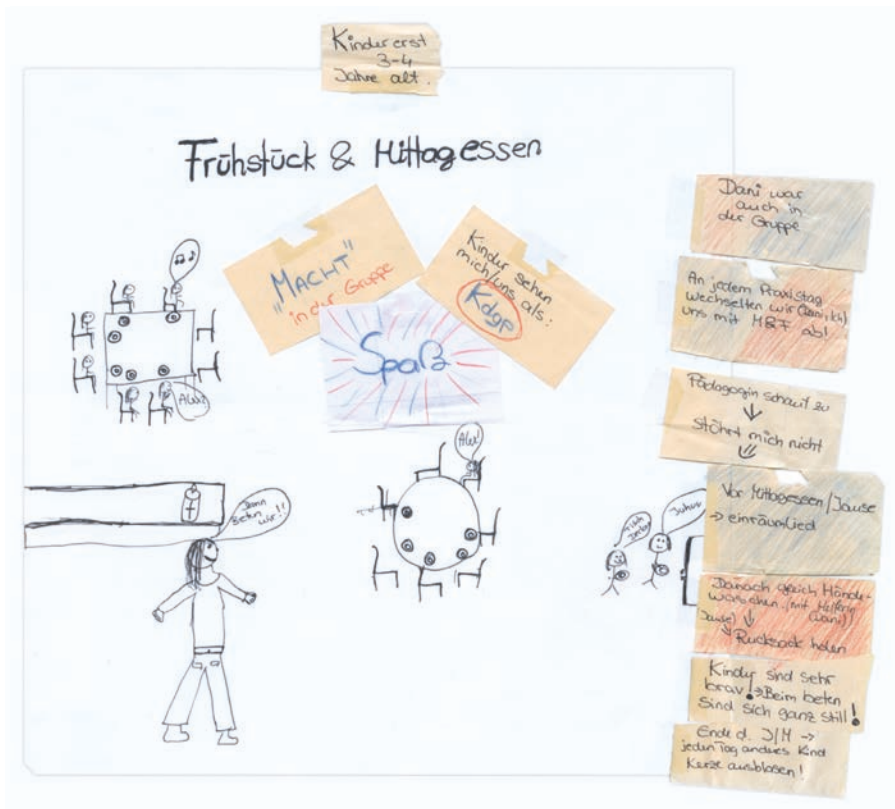 Kinder erst
3-4
Jahre alt.
Frühstück & Mittagessen
"MACHT"
in der Gruppe
Kinder sehen
mich/uns als:
Kdgp
Spaß
Alex!
Dann
beten
wir!!
Alex!
Juhuu
Dani war
auch in
der Gruppe
An jedem Praxistag
wechselten wir (Dani, Ich)
uns mit M&F ab!
Pädagogin schaut zu
stöhrt mich nicht
Vor Mittagessen/Jause
→ einräumlied
Danach gleich Hände-
waschen. (mit Helferin
(Dani))
Jause)
→ Rucksack holen
Kinder sind sehr
brav! → Beim beten
sind sich ganz still!
Ende d. J/M →
jeden Tag anderes Kind
Kerze ausblasen!